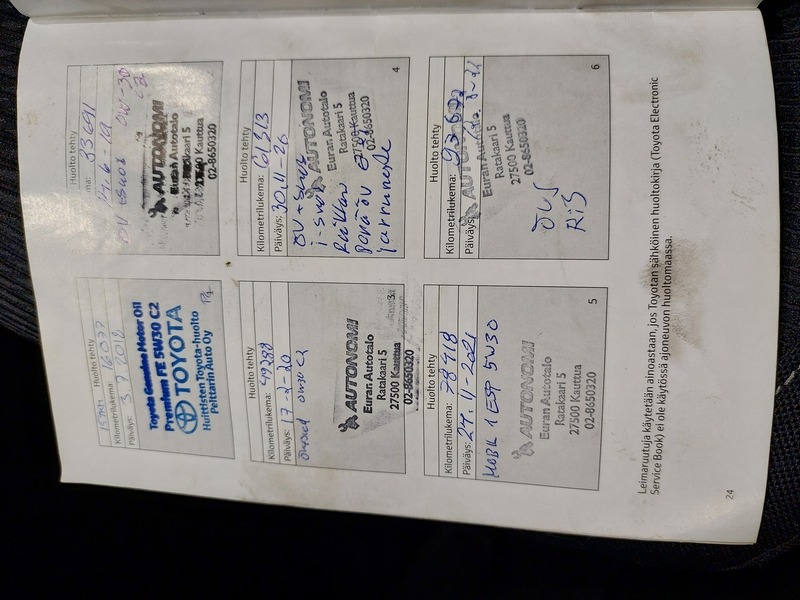 15 tkm
Huolto tehty
Kilometrilukema: 16077
Päiväys: 3.7.2018
Toyota Genuine Motor Oil
Premium FE 5W30 C2
TOYOTA
Huittisten Toyota-huolto
Pelttarin Auto Oy
Huolto tehty
33691
0W-30
C2
AUTONOMI
Euran Autotalo
Ratakaari 5
27500 Kauttua
02-8650320
Huolto tehty
Kilometrilukema: 49288
Päiväys: 17-2-20
0W30 C2
3
AUTONOMI
Euran Autotalo
Ratakaari 5
27500 Kauttua
02-8650320
Huolto tehty
Kilometrilukema: 61313
Päiväys: 30.11-20
ÖV + suod
i-suod
AUTONOMI
Euran Autotalo
Ratakaari 5
27500 Kauttua
02-8650320
4
Huolto tehty
Kilometrilukema: 78418
Päiväys: 24.11-2021
MOBIL 1 ESP 5W30
AUTONOMI
Euran Autotalo
Ratakaari 5
27500 Kauttua
02-8650320
5
Huolto tehty
Kilometrilukema:
Päiväys:
AUTONOMI
Euran Autotalo
Ratakaari 5
27500 Kauttua
02-8650320
ÖVS
6
Leimaruutuja käytetään ainoastaan, jos Toyotan sähköinen huoltokirja (Toyota Electronic
Service Book) ei ole käytössä ajoneuvon huoltomaassa.
24